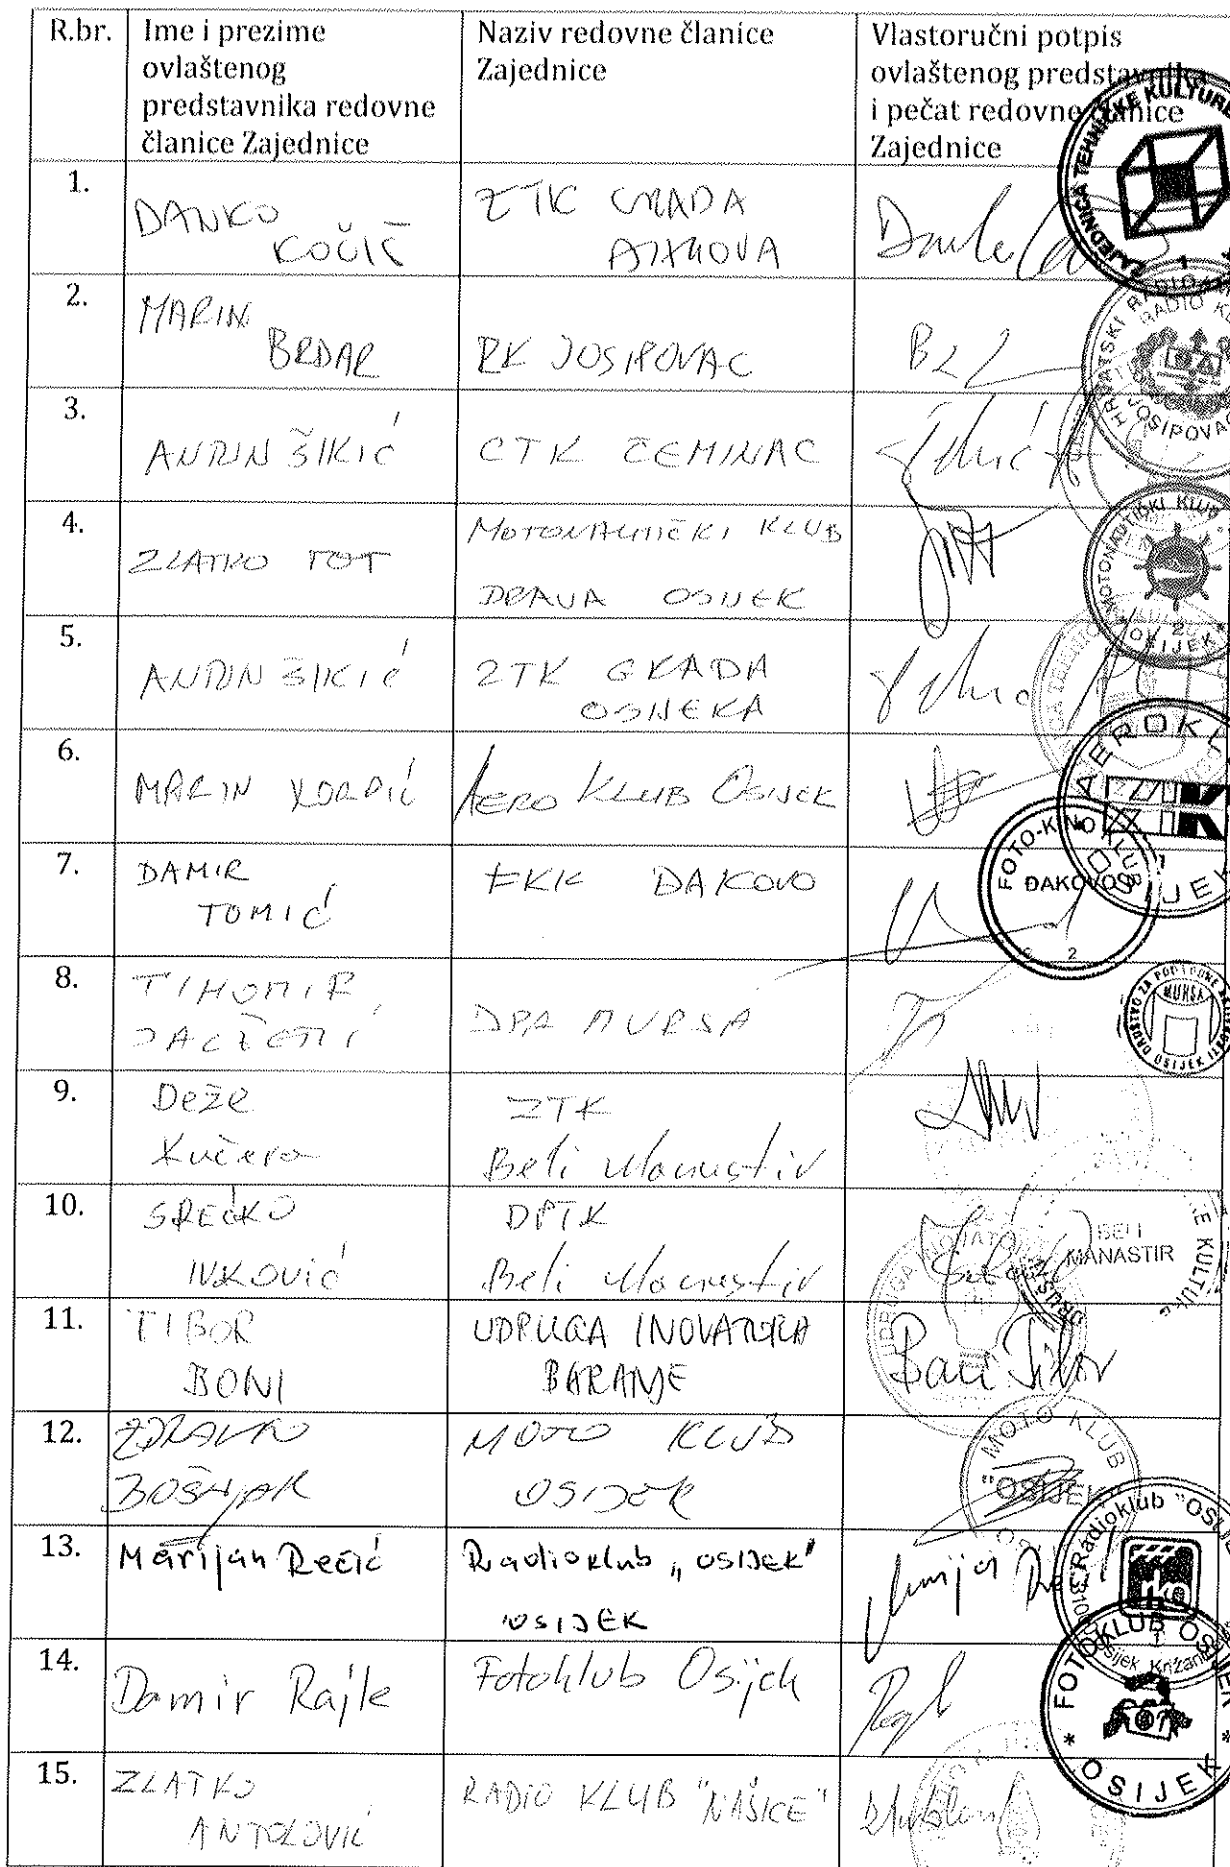 R.br.
Ime i prezime
ovlaštenog
predstavnika redovne
članice Zajednice
Naziv redovne članice
Zajednice
Vlastoručni potpis
ovlaštenog predstavnika
i pečat redovne članice
Zajednice
1.
DANKO
KOČIĆ
ZTK GRADA
ĐAKOVA
ZAJEDNICA TEHNIČKE KULTURE
1
2.
MARIN
BRDAR
RK JOSIPOVAC
HRVATSKI
RADIO
JOSIPOVAC
3.
ANTUN ŠIKIĆ
CTK ČEMINAC
4.
ZLATKO TOT
MOTONAUTIČKI KLUB
DRAVA OSIJEK
MOTONAUTIČKI KLUB
2
OSIJEK
5.
ANTUN ŠIKIĆ
ZTK GRADA
OSIJEKA
6.
MARIN
AERO KLUB OSIJEK
7.
DAMIR
TOMIĆ
FKK ĐAKOVO
FOTO-KINO KLUB
ĐAKOVO
2
8.
TIHOMIR
DPA MURSA
MURSA
OSIJEK
9.
Deže
Kučera
ZTK
Beli Manastir
10.
SREĆKO
IVKOVIĆ
DPTK
Beli Manastir
BELI
MANASTIR
11.
TIBOR
BONI
UDRUGA INOVATORA
BARANJE
12.
ZDRAVKO
BOŠNJAK
MOTO KLUB
OSIJEK
MOTO KLUB
"OSIJEK"
13.
Marijan Rečić
Radioklub „OSIJEK"
OSIJEK
Radioklub "OSIJEK
14.
Damir Rajle
Fotoklub Osijek
FOTOKLUB OSIJEK
* OSIJEK *
15.
ZLATKO
ANTOLOVIĆ
RADIO KLUB "NAŠICE"